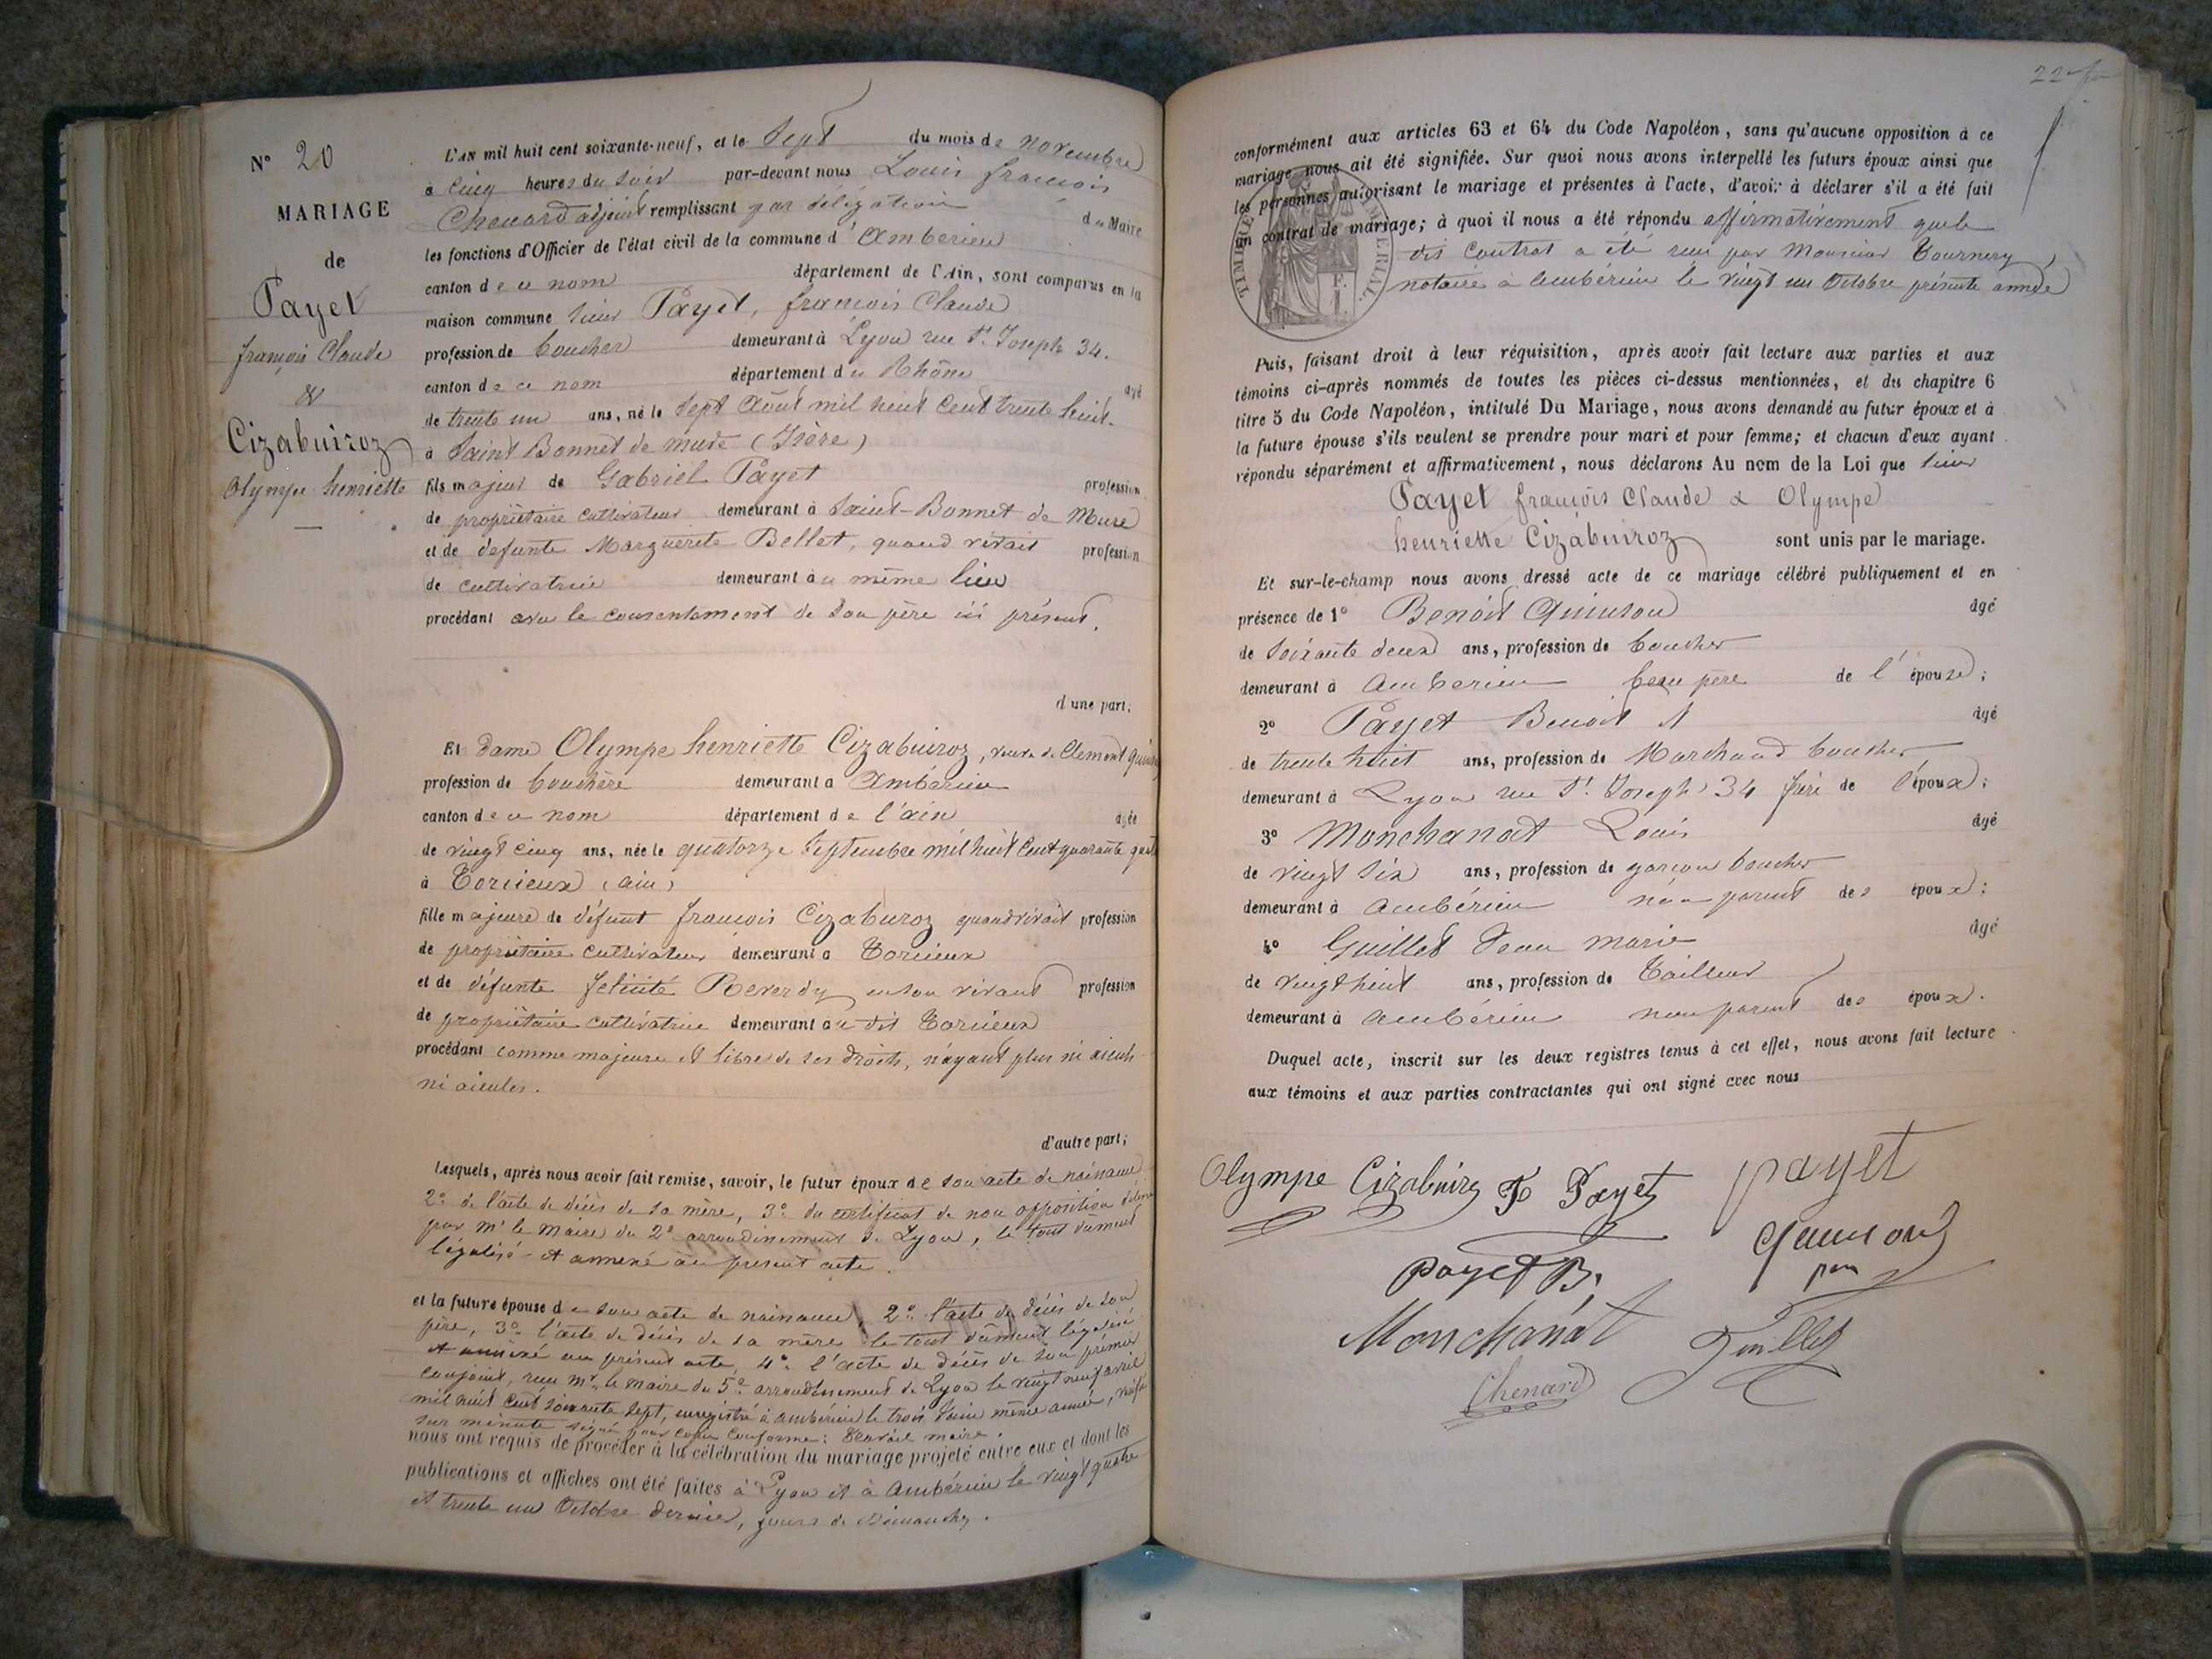 N° 20
MARIAGE
de
Payet
françois Claude
&
Cizabuiroz
Olympe henriette
L'AN mil huit cent soixante-neuf, et le Sept du mois de novembre
à Cinq heures du soir par-devant nous Louis françois
Chenard adjoint remplissant par délégation du Maire
les fonctions d'Officier de l'état civil de la commune d'Ambérieu
canton de ce nom département de l'Ain, sont comparus en la
maison commune sieur Payet, françois Claude
profession de boucher demeurant à Lyon rue St. Joseph 34.
canton de ce nom département du Rhône âgé
de trente un ans, né le Sept Août mil huit Cent trente huit.
à Saint Bonnet de mure (Isère)
fils majeur de Gabriel Payet profession
de propriétaire cultivateur demeurant à Saint-Bonnet de Mure
et de défunte Marguerite Bellet, quand vivait profession
de cultivatrice demeurant au même lieu
procédant avec le consentement de son père ici présent.
d'une part;
Et dame Olympe henriette Cizabuiroz, veuve de Clement
profession de bouchère demeurant à Ambérieu
canton de ce nom département de l'ain âgée
de vingt cinq ans, née le quatorze Septembre mil huit Cent quarante
à Torcieux (ain)
fille majeure de défunt françois Cizaburoz quand vivait profession
de propriétaire cultivateur demeurant à Torcieux
et de défunte félicité Reverdy en son vivant profession
de propriétaire cultivatrice demeurant au dit Torcieux
procédant comme majeure et libre de ses droits, n'ayant plus ni aieuls
ni aieules.
d'autre part;
Lesquels, après nous avoir fait remise, savoir, le futur époux de son acte de naissance
2° de l'acte de décès de sa mère, 3° du certificat de non opposition
par Mr le Maire du 2e arrondissement de Lyon, le tout dument
légalisé et annexé au présent acte.
et la future épouse de son acte de naissance, 2° l'acte de décès de son
père, 3° l'acte de décès de sa mère le tout dûment légalisé
et annexé au présent acte, 4° l'acte de décès de son premier
conjoint, reçu Mr le Maire du 5e arrondissement de Lyon le vingt neuf avril
mil huit Cent soixante sept, enregistré à ambérieu le trois Juin même année,
sur minute signé pour copie conforme: maire.
nous ont requis de procéder à la célébration du mariage projeté entre eux et dont les
publications et affiches ont été faites à Lyon et à Ambérieu le vingt quatre
et trente un Octobre dernier, jours de Dimanche.
conformément aux articles 63 et 64 du Code Napoléon, sans qu'aucune opposition à ce
mariage nous ait été signifiée. Sur quoi nous avons interpellé les futurs époux ainsi que
les personnes autorisant le mariage et présentes à l'acte, d'avoir à déclarer s'il a été fait
un contrat de mariage; à quoi il nous a été répondu affirmativement que le
dit Contrat a été reçu par Monsieur Tournery,
notaire à ambérieu le vingt un Octobre présente année
TIMBRE IMPERIAL
Puis, faisant droit à leur réquisition, après avoir fait lecture aux parties et aux
témoins ci-après nommés de toutes les pièces ci-dessus mentionnées, et du chapitre 6
titre 5 du Code Napoléon, intitulé Du Mariage, nous avons demandé au futur époux et à
la future épouse s'ils veulent se prendre pour mari et pour femme; et chacun d'eux ayant
répondu séparément et affirmativement, nous déclarons Au nom de la Loi que sieur
Payet françois Claude & Olympe
henriette Cizabuiroz sont unis par le mariage.
Et sur-le-champ nous avons dressé acte de ce mariage célébré publiquement et en
présence de 1° Benoit Quinson âgé
de soixante deux ans, profession de boucher
demeurant à Ambérieu beau père de l'épouse;
2° Payet Benoit âgé
de trente huit ans, profession de Marchand boucher
demeurant à Lyon rue St. Joseph 34 frère de l'époux;
3° Monchanat Louis âgé
de vingt six ans, profession de garçon boucher
demeurant à Ambérieu non parent des époux;
4° Guillet Jean marie âgé
de vingt huit ans, profession de Tailleur
demeurant à Ambérieu non parent des époux.
Duquel acte, inscrit sur les deux registres tenus à cet effet, nous avons fait lecture
aux témoins et aux parties contractantes qui ont signé avec nous
Olympe Cizabuiroz F Payet payet
Payet B. Quinson
Monchanat Guillet
Chenard